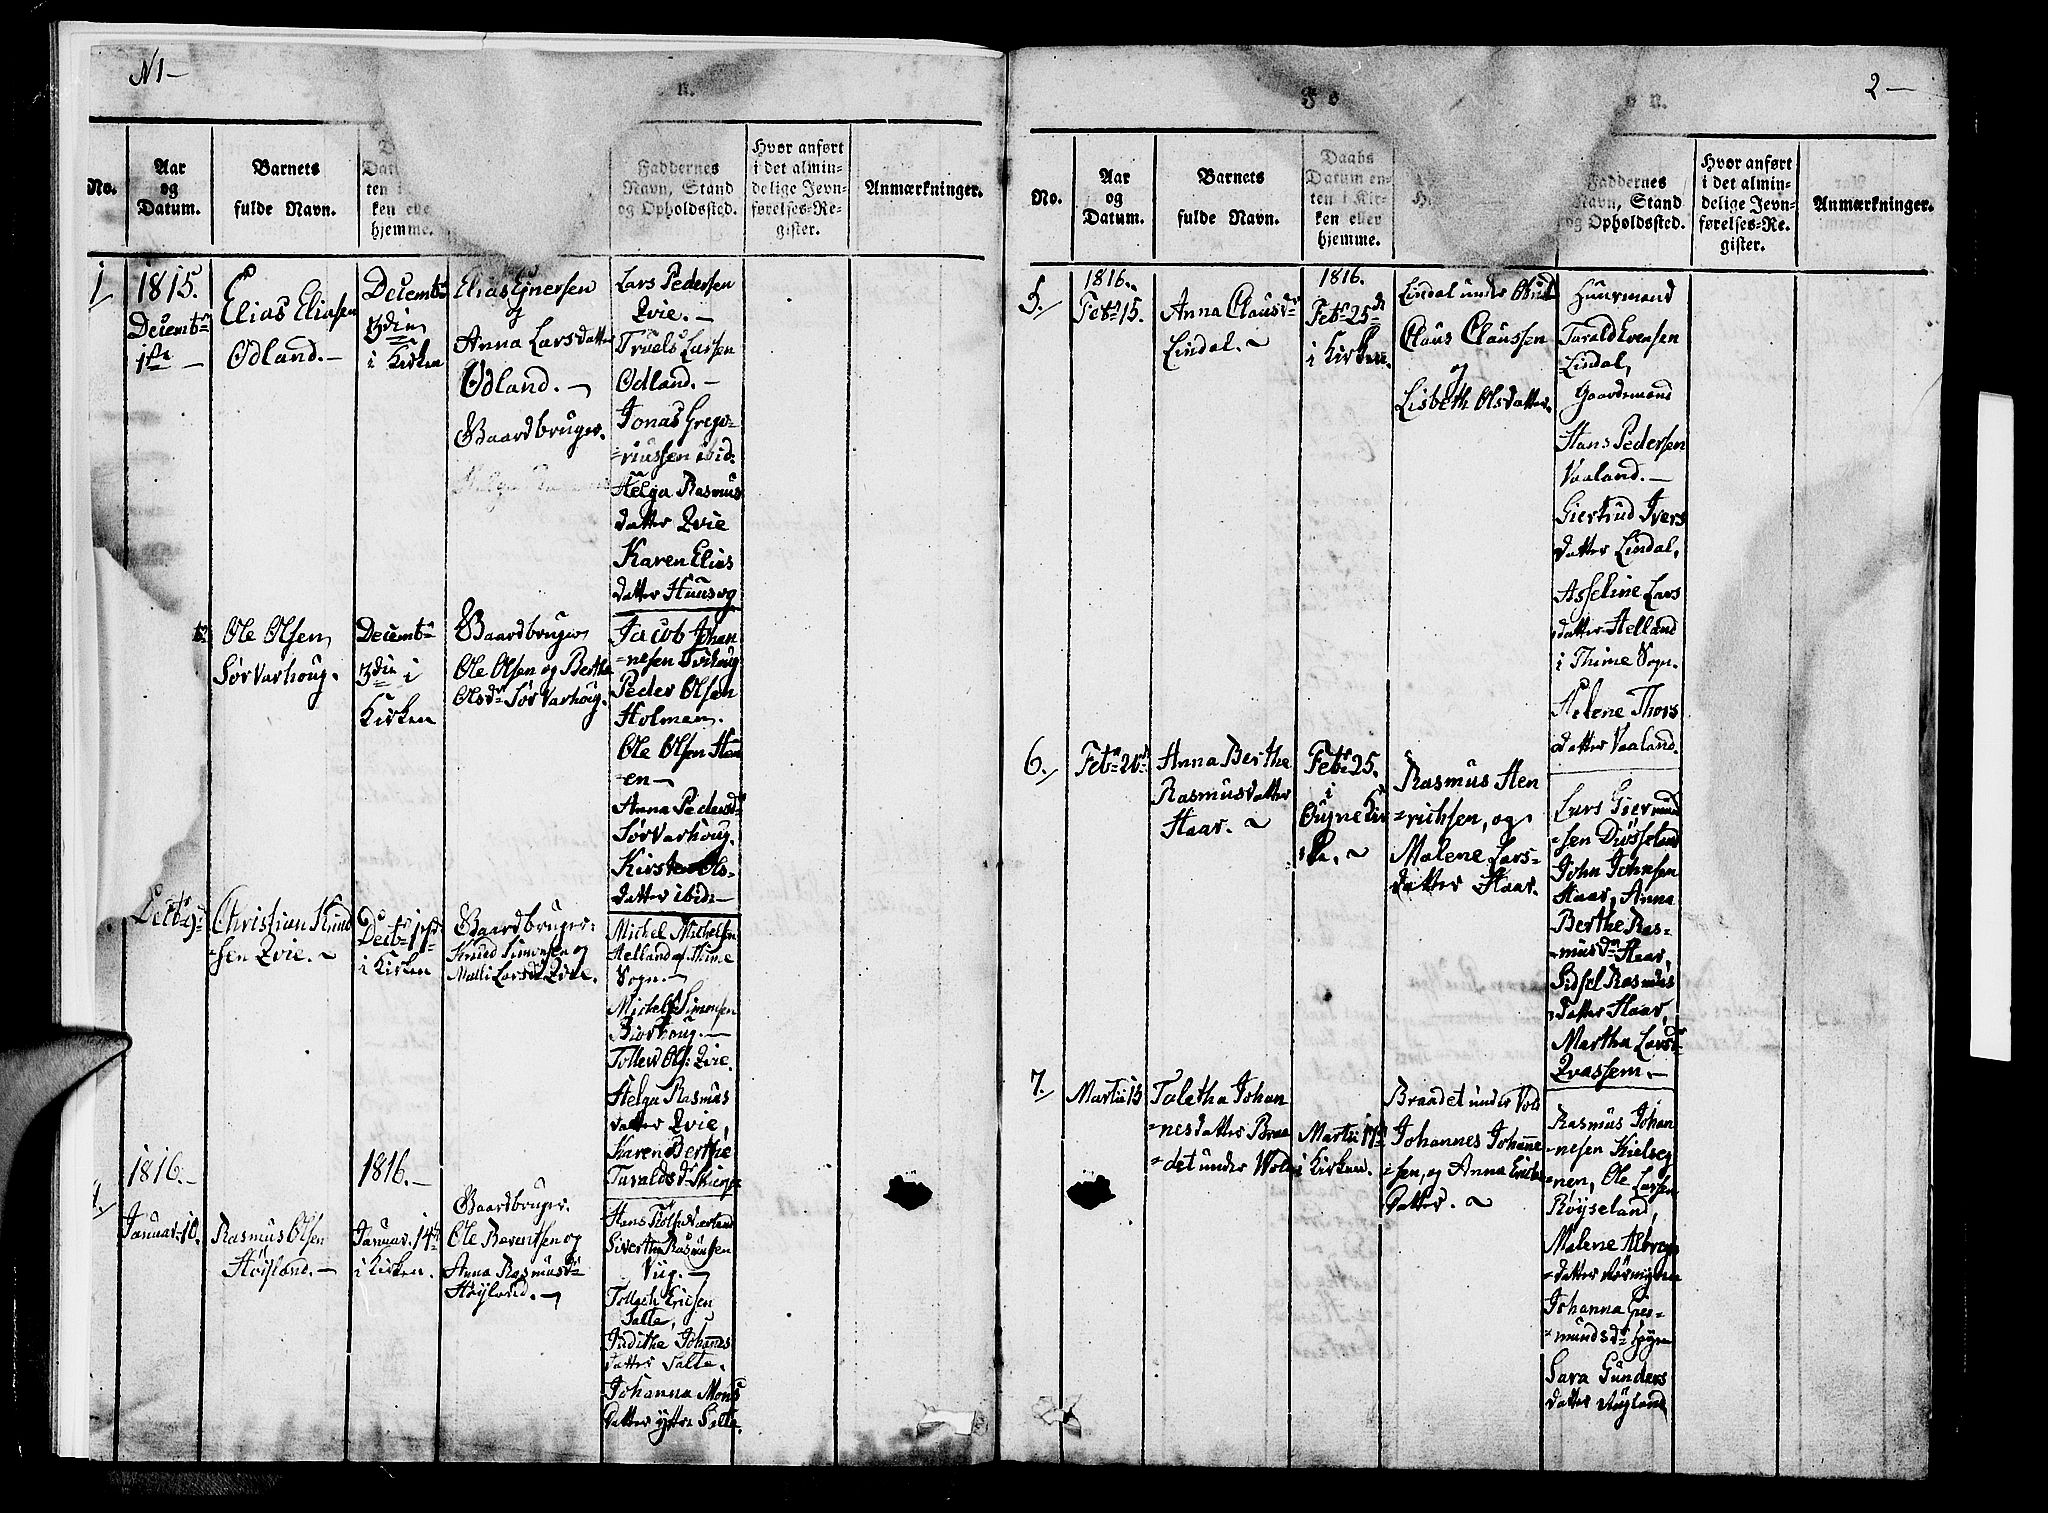 N1 —
n.
No.
Aar
og
Datum.
Barnets
fulde Navn.
ten i
ken elle
hjemme.
Faddernes
Navn, Stand
og Opholdssted.
Hvor anført
i det almin-
delige Jevn-
førelses-Re-
gister.
Anmærkninger.
1
1815.
Decembr
1ste —
Elias Eliasen
Odland. —
Decembr
3die
i Kirken
Elias Ejnersen
og
Anna Larsdatter
Odland. —
Gaardbruger.
Lars Pedersen
Qvie. —
Truels Larsen
Odland. —
Jonas Grego-
=riussen ibid.
Helga Rasmus
datter Qvie
Karen Elias
datter Huusog
Ole Olsen
Sør Varhoug.
Decembr
3die i
Kirken
Gaardbruger
Ole Olsen og Berthe
Olsdr Sør Varhoug.
Jacob Johan
=nesen Tvihoug
Peder Olsen
Holmen.
Ole Olsen Haa
=en —
Anna Pedersdr
Sør Varhoug.
Kirsten Ols-
datter ibid. —
Decbr 9
Christian Knud
=sen Qvie. ~
Decbr 17
i Kirken
Gaardbruger:
Knud Simonsen og
Malli Larsdr Qvie.
Michel Michelsen
Helland af Thime
Sogn. —
Michel Simonsen
Biorhoug. —
Tollev Ols: Qvie.
Helga Rasmus
datter Qvie,
Karen Berthe
Taraldsdr
1816. —
Januar. 10.
Rasmus Olsen
Høyland. —
1816. —
Januar. 14
i Kirken.
Gaardbruger.
Ole Berentsen og
Anna Rasmusdr
Høyland. —
Hans
Sivert Rasmusen
Viig. —
Tollach Ericsen
Salte,
Judithe Johannes
datter Salte.
Johanna Mons
datter ytre Salte.
2 —
F o
n.
No.
Aar
og
Datum.
Barnets
fulde Navn.
Daabs
Datum en-
ten i Kir-
ken eller
hjemme.
Faddernes
Navn, Stand
og Opholdssted.
Hvor anført
i det almin-
delige Jevn-
førelses-Re-
gister.
Anmærkninger.
5.
1816.
Febr 15.
Anna Clausdr
Lindal. ~
1816.
Febr 25
i Kirken.
Lindal under
Claus Claussen
og
Lisbeth Olsdatter.
Huusmand
Tarald Evensen
Lindal,
Gaardmand
Hans Pedersen
Vaaland. —
Giertrud Ivers
datter Lindal,
Asseline Lars
datter Helland
i Thime Sogn.
Helene Thors
datter Vaaland.
6.
Febr 20
Anna Berthe
Rasmusdatter
Haar. ~
Febr 25.
i
Ougne Kir
ke. ~
Rasmus Hen
=richsen, og
Malene Lars-
datter Haar.
Lars Giermund
=sen Dusseland
John Johnsen
Haar, Anna
Berthe Ras-
musdr Haar,
Sidsel Rasmus
datter Haar,
Martha Larsdr
Qvassem. —
7.
Martii 13
Taletha Johan
=nesdatter Braa
=det under Wold
Martii 17
i Kirken.
Braadet under Vold
Johannes Johanne
=sen, og Anna Erichs
datter. ~
Rasmus Johan
=nesen Kielseg
=nen, Ole Larsen
Røyseland,
Malene
=datter
Johanna Gier-
=mundsdr
Sara Gunders
datter